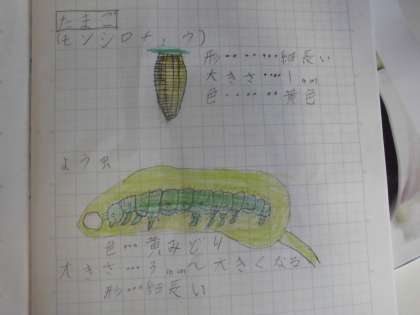 たまご
(モンシロチョウ)
形‥‥‥細長い
大きさ‥‥1mm
色‥‥‥黄色
よう虫
色‥‥黄みどり
大きさ‥‥3mm〜大きくなる
形‥‥細長い